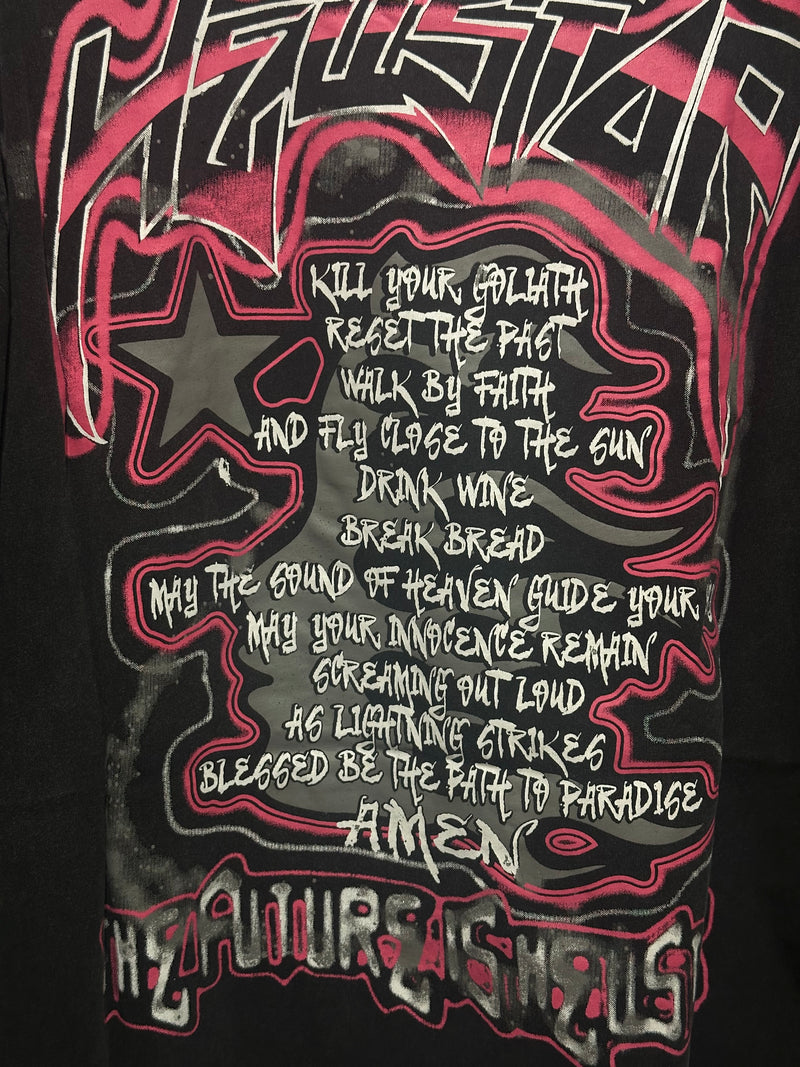 HELLSTAR
KILL YOUR GOLIATH
RESET THE PAST
WALK BY FAITH
AND FLY CLOSE TO THE SUN
DRINK WINE
BREAK BREAD
MAY THE SOUND OF HEAVEN GUIDE YOUR
MAY YOUR INNOCENCE REMAIN
SCREAMING OUT LOUD
AS LIGHTNING STRIKES
BLESSED BE THE PATH TO PARADISE
AMEN
THE FUTURE IS HELLS